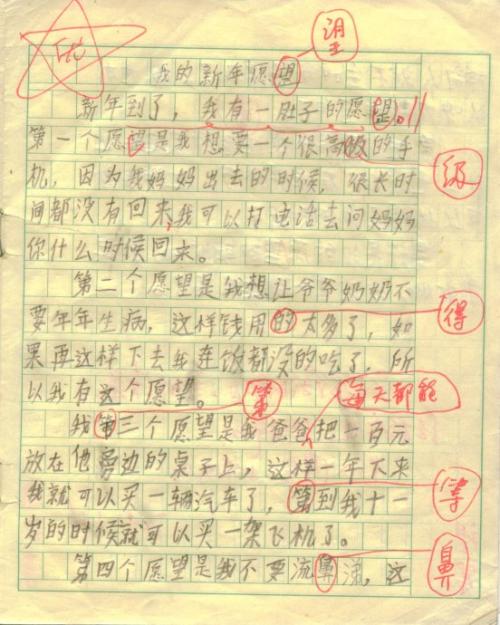 望
优
我的新年愿望
新年到了，我有一肚子的愿望。
第一个愿望是我想要一个很高级的手
级
机，因为我妈妈出去的时候，很长时
间都没有回来，我可以打电话去问妈妈
你什么时候回来。
第二个愿望是我想让爷爷奶奶不
要年年生病，这样钱用的太多了，如
得
果再这样下去我连饭都没的吃了，所
以我有这个愿望。
第
每天都能
我第三个愿望是我爸爸把一百元
放在他旁边的桌子上，这样一年下来
我就可以买一辆汽车了，等到我十一
等
岁的时候就可以买一架飞机了。
第四个愿望是我不要流鼻涕，这
鼻